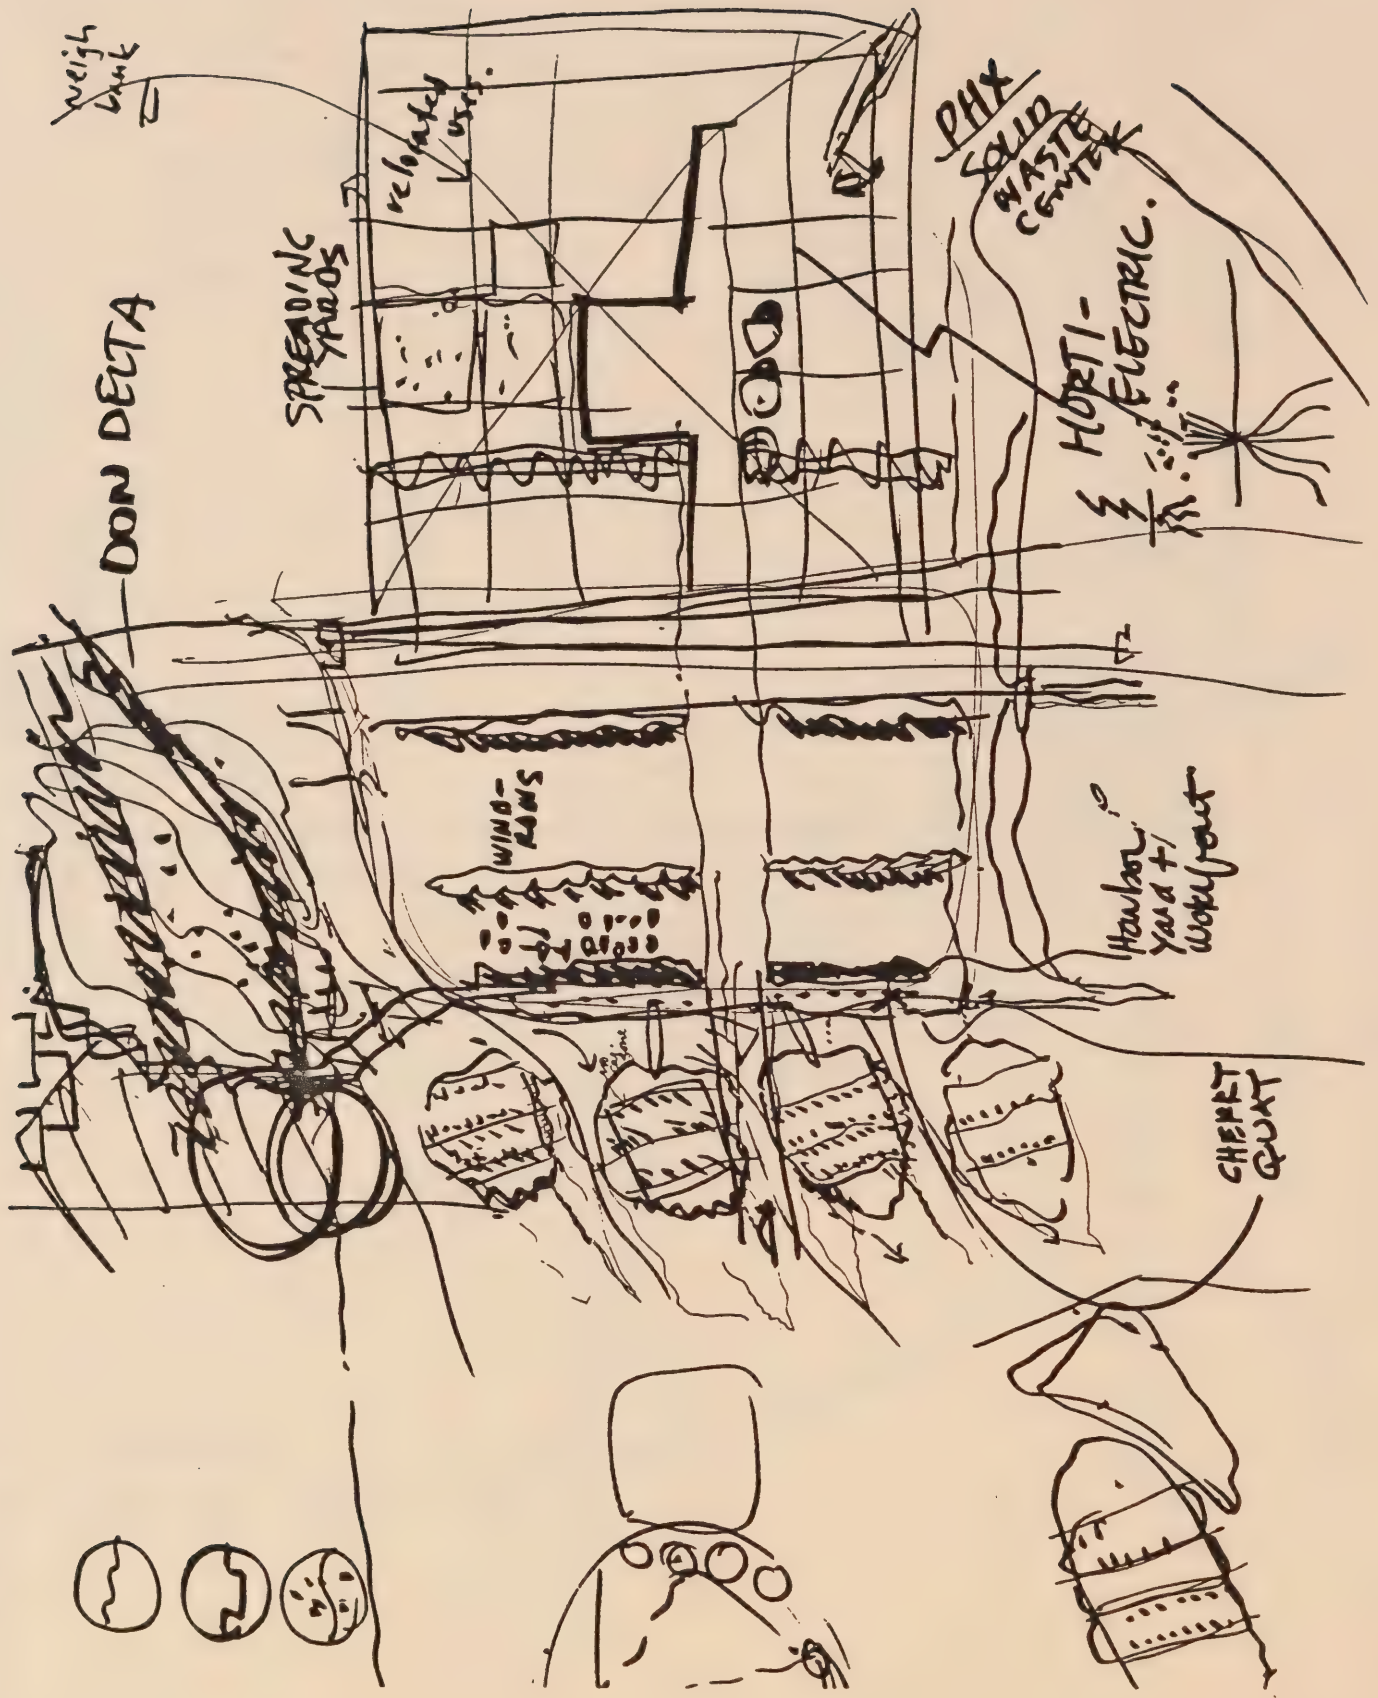 weigh
DON DELTA
SPREADING
YARDS
relocated
uses.
PHX
SOLID
WASTE
CENTER
HORTI-
ELECTRIC.
WIND-
ROWS
Harbor
yard +
CHEMRET
QUAT